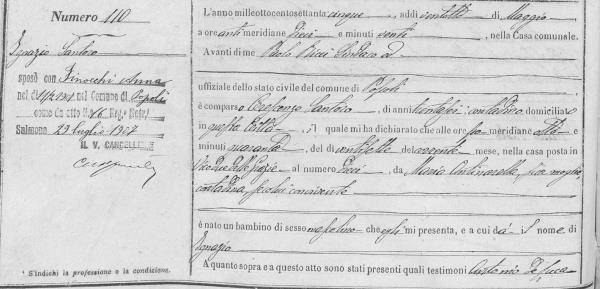 Numero 110
Ignazio Santoro
sposò con Finocchi Anna
nel di nel Comune di Popoli
come da atto N. 16 Reg.
Salmona 29 Luglio 1907
IL V. CANCELLIERE
L'anno milleottocentosettanta cinque, addì ventotto di Maggio
a ore anti meridiane Dieci e minuti venti, nella Casa comunale.
Avanti di me Ricci Sindaco
uffiziale dello stato civile del comune di Popoli
è comparso Santoro, di anni contadino domiciliato
in questa Città, il quale mi ha dichiarato che alle ore meridiane otto e
minuti quaranta, del dì ventisette del corrente mese, nella casa posta in
Vico delle Grazie al numero Dieci, da Maria sua moglie,
contadina, seco lui convivente
è nato un bambino di sesso mascolino che egli mi presenta, e a cui dà il nome di
Ignazio
A quanto sopra e a questo atto sono stati presenti quali testimoni Antonio
¹ S'indichi la professione o la condizione.